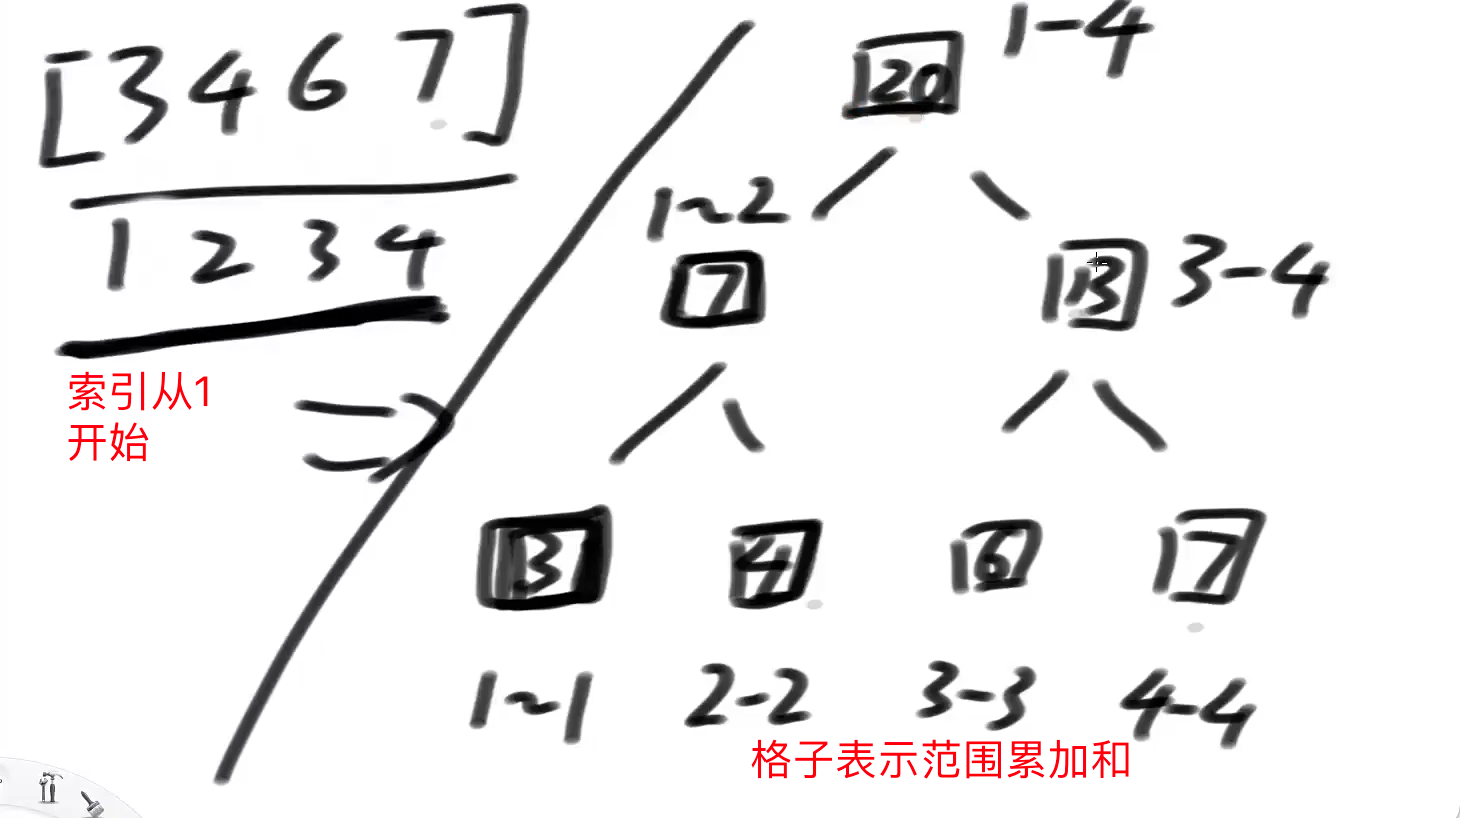 [3 4 6 7]
1 2 3 4
索引从1
开始
20 1-4
1~2
7
13 3-4
3 4 6 7
1~1 2-2 3-3 4-4
格子表示范围累加和